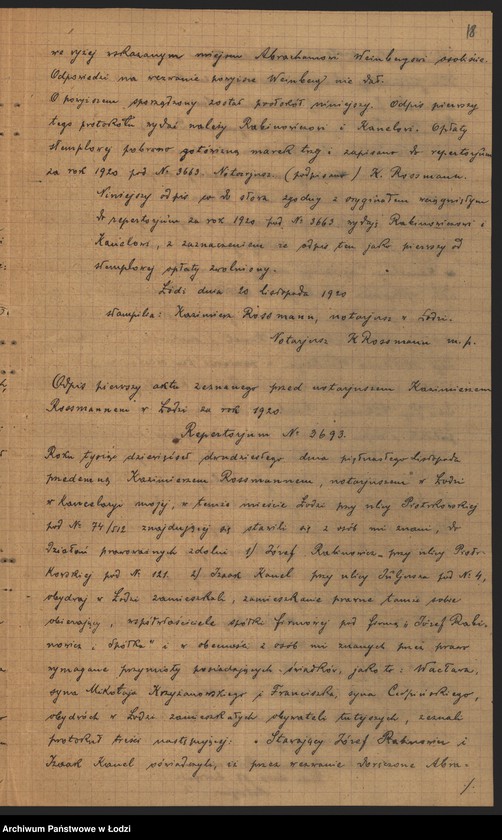 18
we wyżej wskazanym miejscu Abrachamowi Weinbergowi osobiście.
Odpowiedzi na wezwanie powyższe Weinberg nie dał.
O powyższem sporządzony został protokół niniejszy. Odpis pierwszy
tego protokółu wydać należy Rabinowiczowi i Kanelowi. Opłaty
stemplowej pobrano gotówizną marek trzy i zapisano do repertorjum
za rok 1920 pod Nr. 3663. Notarjusz (podpisano) K. Rossmann.
Niniejszy odpis co do słowa zgodny z oryginałem wciągniętym
do repertorjum za rok 1920 pod Nr 3663 wydaję Rabinowiczowi i
Kanelowi, z zaznaczeniem że odpis ten jako pierwszy od
stemplowej opłaty zwolniony.
Łódź dnia 20 listopada 1920
stampila: Kazimierz Rossmann, notarjusz w Łodzi.
Notarjusz K Rossmann m. p.
Odpis pierwszy aktu zeznanego przed notarjuszem Kazimierzem
Rossmannem w Łodzi za rok 1920.
Repertorjum Nr 3693.
Roku tysiąc dziewięćset dwudziestego dnia piętnastego listopada
przedemną Kazimierzem Rossmannem, notarjuszem w Łodzi
w kancelarji mojej, w temże mieście Łodzi przy ulicy Piotrkowskiej
pod Nr 74/512 znajdującej się stawili się z osób mi znani, do
działań prawomocnych zdolni 1/ Józef Rabinowicz przy ulicy Piotr-
kowskiej pod Nr. 121. 2/ Izaak Kanel przy ulicy Juljusza pod Nr 4,
obydwaj w Łodzi zamieszkali, zamieszkanie prawne tamże sobie
obierający, współwłaściciele spółki firmowej pod firmą „Józef Rabi-
nowicz, Spółka" i w obecności z osób mi znanych przez prawo
wymagane przymioty posiadających świadków, jako to: Wacława,
syna Mikołaja Krzyżanowskiego i Franciszka, syna
obydwóch w Łodzi zamieszkałych obywateli tutejszych, zeznali
protokół treści następującej: Stawający Józef Rabinowicz i
Izaak Kanel oświadczyli, iż przez wezwanie doręczone Abra-
/.
Archiwum Państwowe w Łodzi